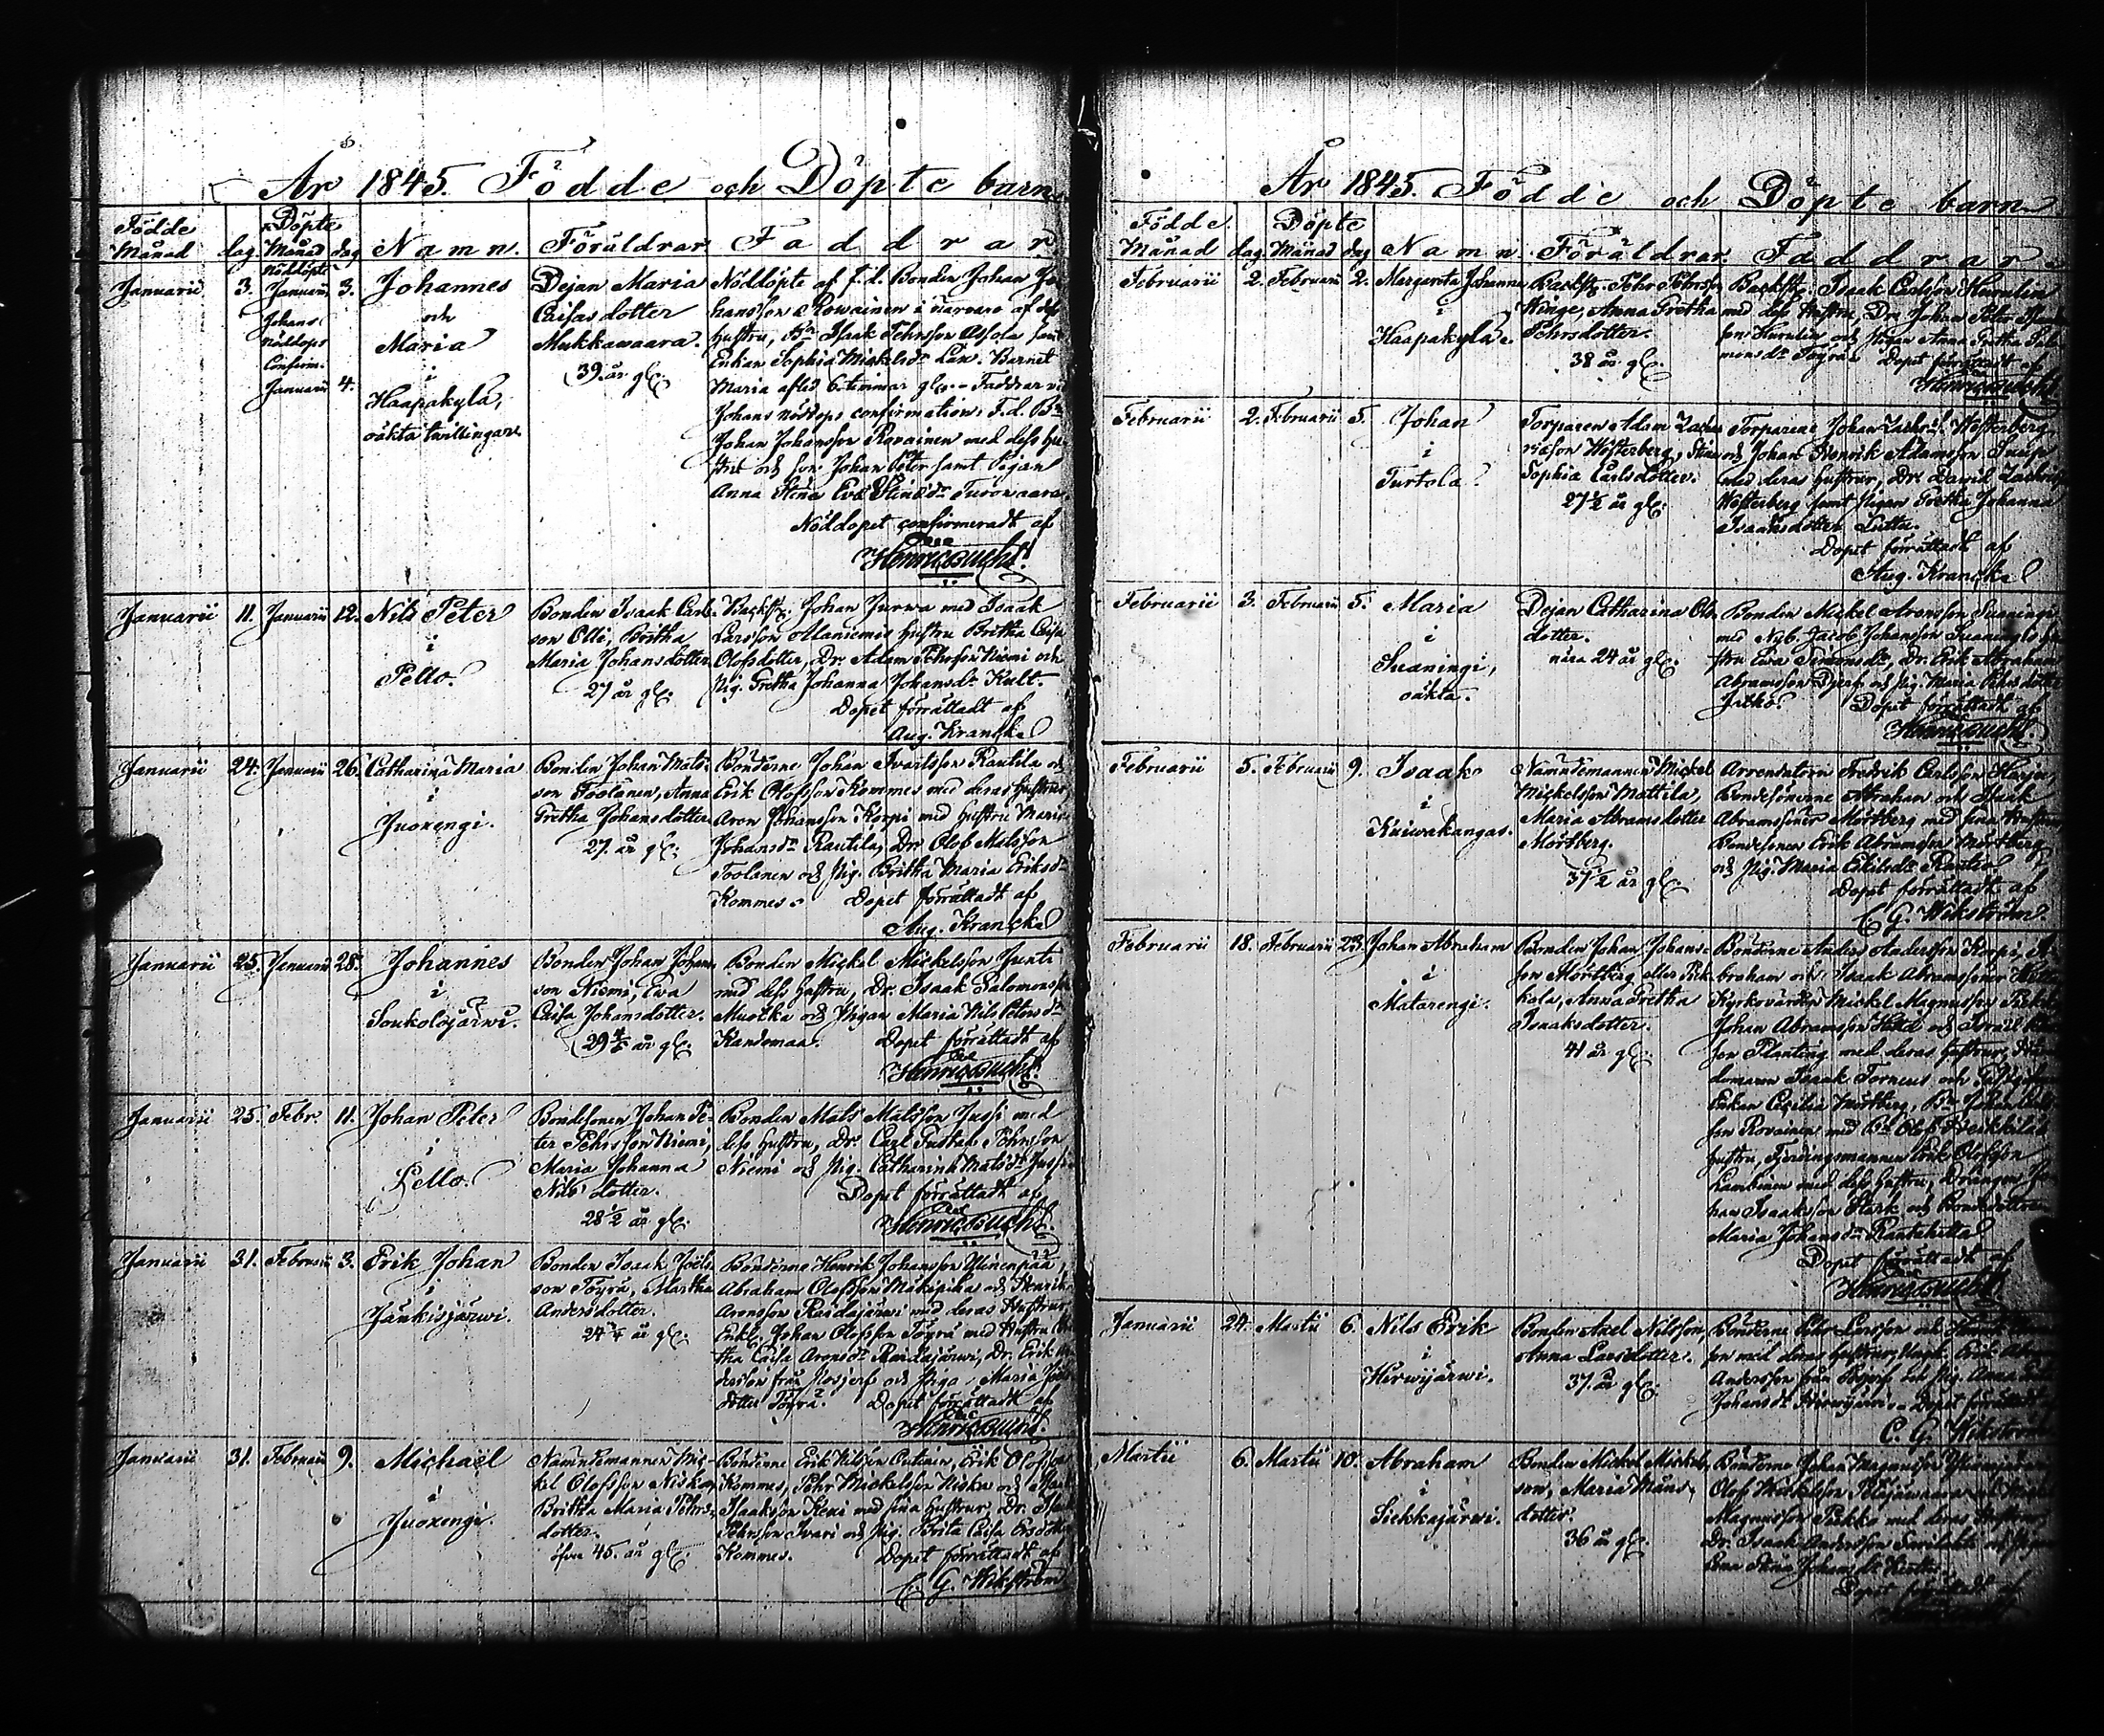 År 1845. Födde och Döpte barn
Födde Döpte
Månad dag. Månad dag Namn. Föräldrar Faddrar
Januarii 3. Nöddöpte Januarii 3.
Johans
nöddops
Confirm.
Januarii 4.
Johannes
och
Maria
i
Haapakylä,
oäkta twillingar.
Dejan Maria
Caisas dotter
Mukkawaara.
39. år gl.
Nöddöpte af f. d. Bonden Johan Jo-
hansson Rowainen i närvaro af dess
hustru, Isaak Pehrsson
Enkan Sophia Mickelsdr Barnet
Maria afled 6 timmar gl. Faddrar vid
Johans nöddops confirmation: F. d. Bn
Johan Johansson Rovainen med dess hu-
stru och son Johan Peter samt Pigan
Anna Stina Eva Stinasdr Turowaara.
Nöddopet confirmeradt af
Henric Bucht.
Januarii 11. Januarii 12. Nils Peter
i
Pello.
Bonden Isaak Carls-
son Olli, Britha
Maria Johansdotter.
27 år gl.
Backstg. Johan Jurwa med Isaak
Larsson Alaniemis hustru Britha Caisa
Olofsdotter, Dr. Adam Pehrsson Niemi och
Pig. Gretha Johanna Johansdr Kult.
Dopet förrättadt af
Aug. Krancka
Januarii 24. Januarii 26. Catharina Maria
i
Juoxengi.
Bonden Johan Mats-
son Toolanen, Anna
Gretha Johansdotter.
27. år gl.
Bönderne Johan Ivarsson Rautila och
Erik Olofsson Kommes med deras hustrur,
Aron Johansson Korpi med hustru Maria
Johansdr Rautila, Dr Olof Matsson
Toolanen och Pig. Britha Maria Eriksdr
Kommes. Dopet förrättadt af
Aug. Krancka
Januarii 25. Januarii 28. Johannes
i
Soukolojärwi.
Bonden Johan Johans-
son Niemi, Ewa
Caisa Johansdotter.
29 år gl.
Bonden Mickel Mickelsson Junti
med dess hustru, Dr. Isaak Salomonsson
Muotka och Pigan Maria Nils Petersdr
Kandomaa. Dopet förrättadt af
Henric Bucht.
Januarii 25. Febr. 11. Johan Peter
i
Pello.
Bondesonen Johan Pe-
ter Pehrsson Niemi,
Maria Johanna
Nils dotter.
28 1/2 år gl.
Bonden Mats Matsson Jussi med
dess hustru, Dr. Carl Gustav Pehrsson
Niemi och Pig. Catharina Matsdr Jussi
Dopet förrättadt af
Henric Bucht.
Januarii 31. Februarii 3. Erik Johan
i
Jänkisjärwi.
Bonden Isaak Joels-
son Töyrä, Martha
Andersdotter.
24 år gl.
Bönderne Henrik Johansson Ylinenpää,
Abraham Olofsson Mäkipika och Henrik
Aronsson Raidajärwi med deras hustrur,
Enkl. Johan Olofsson Töyrä med hustru
tha Caisa Aronsdr Raidajärwi, Dr. Erik
från och Piga Maria
dotter Töyrä. Dopet förrättadt af
Henric Bucht.
Januarii 31. Februarii 9. Michaël
i
Juoxengi.
Nämndemannen Mic-
kel Olofsson Niska,
Britha Maria Pehrs-
dotter.
öfver 45. år gl.
Bönderne Erik Nilsson Erik Olofsson
Kommes, Pehr Mickelsson Niska och
Isaaksson Kexi med sina hustrur, Dr.
Pehrsson Ivari och Pig. Brita Caisa Ersdotter
Kommes. Dopet förrättadt af
C. G. Wikström
År 1845. Födde och Döpte barn
Födde. Döpte
Månad dag. Månad dag Namn Föräldrar. Faddrar
Februarii 2. Februarii 2. Margareta Johanna
i
Haapakylä.
Backstg. Pehr Pehrsson
Winge, Anna Gretha
Pehrsdotter.
38 år gl.
Backstg. Isaak Carlsson
med dess hustru, Dr. Johan Peter
son och Pigan Anna Gretha Salo-
monsdr Töyrä. Dopet förrättadt af
Henric Bucht
Februarii 2. Februarii 5. Johan
i
Turtola.
Torparen Adam Zacha-
riason Westerberg, Stina
Sophia Carlsdotter.
27 1/2 år gl.
Torparene Johan Zachris. Westerberg
och Johan Henrik Adamsson
med deras hustrur, Dr. David Zachris.
Westerberg samt Pigan Gretha Johanna
Isaaksdotter
Dopet förrättadt af
Aug. Krancka
Februarii 3. Februarii 5. Maria
i
Suaningi,
oäkta.
Dejan Catharina Olofs
dotter.
nära 24 år gl.
Bonden Mickel Aronsson Suaningi
med Nyb. Jacob Johansson Suaningis hu-
stru Ewa Simonsdr, Dr. Erik Abraham
Abramsson och Pig. Maria Pehrsdotter
Dopet förrättadt af
Henric Bucht.
Februarii 5. Februarii 9. Isaak
i
Kuiwakangas.
Nämndemannen Mickel
Mickelsson Mattila,
Maria Abramsdotter
Mörtberg.
37 1/2 år gl.
Arrendatorn Fredrik Carlsson
Bondesönerne Abraham och Isaak
Abramssöner Mörtberg med sina hustrur,
Bondesonen Erik Abramsson Mörtberg
och Pig. Maria
Dopet förrättadt af
C. G. Wikström.
Februarii 18. Februarii 23. Johan Abraham
i
Matarengi.
Bonden Johan Johans-
son Mörtberg eller Pek
kola, Anna Gretha
Isaaksdotter.
41 år gl.
Bönderne Anders Andersson Korpi, A-
braham och Isaak Abramssöner
Kyrkovärden Mickel Magnusson
Johan Abramsson och Israel
son Planting med deras hustrur, Näm-
demann Isaak Torneus och
Enkan Cecilia Mörtberg, Bn
son Rovainen med Bn Olof Heikkiläs
hustru, Fjerdingsmannen Erik Olofsson
Lambinen med dess hustru, Drängen Jo-
han Isaaksson Stark och Bondedottren
Maria Johansdr Rantakitta
Dopet förrättadt af
Henric Bucht.
Januarii 24. Martii 6. Nils Erik
i
Hirwijärwi.
Bonden Axel Nilsson,
Anna Larsdotter.
37. år gl.
Bönderne Pehr Larsson och
son med deras hustrur,
Andersson från och Pig. Anna
Johansdr Hirwijärwi. Dopet förrättadt af
C. G. Wikström
Martii 6. Martii 10. Abraham
i
Siekkajärwi.
Bonden Mickel Mickels-
son, Maria Måns-
dotter.
36 år gl.
Bönderne Johan Magnusson
Olof Mickelsson
Magnusson med deras hustrur,
Dr. Isaak Andersson och
Stina Johansdr
Dopet förrättadt af